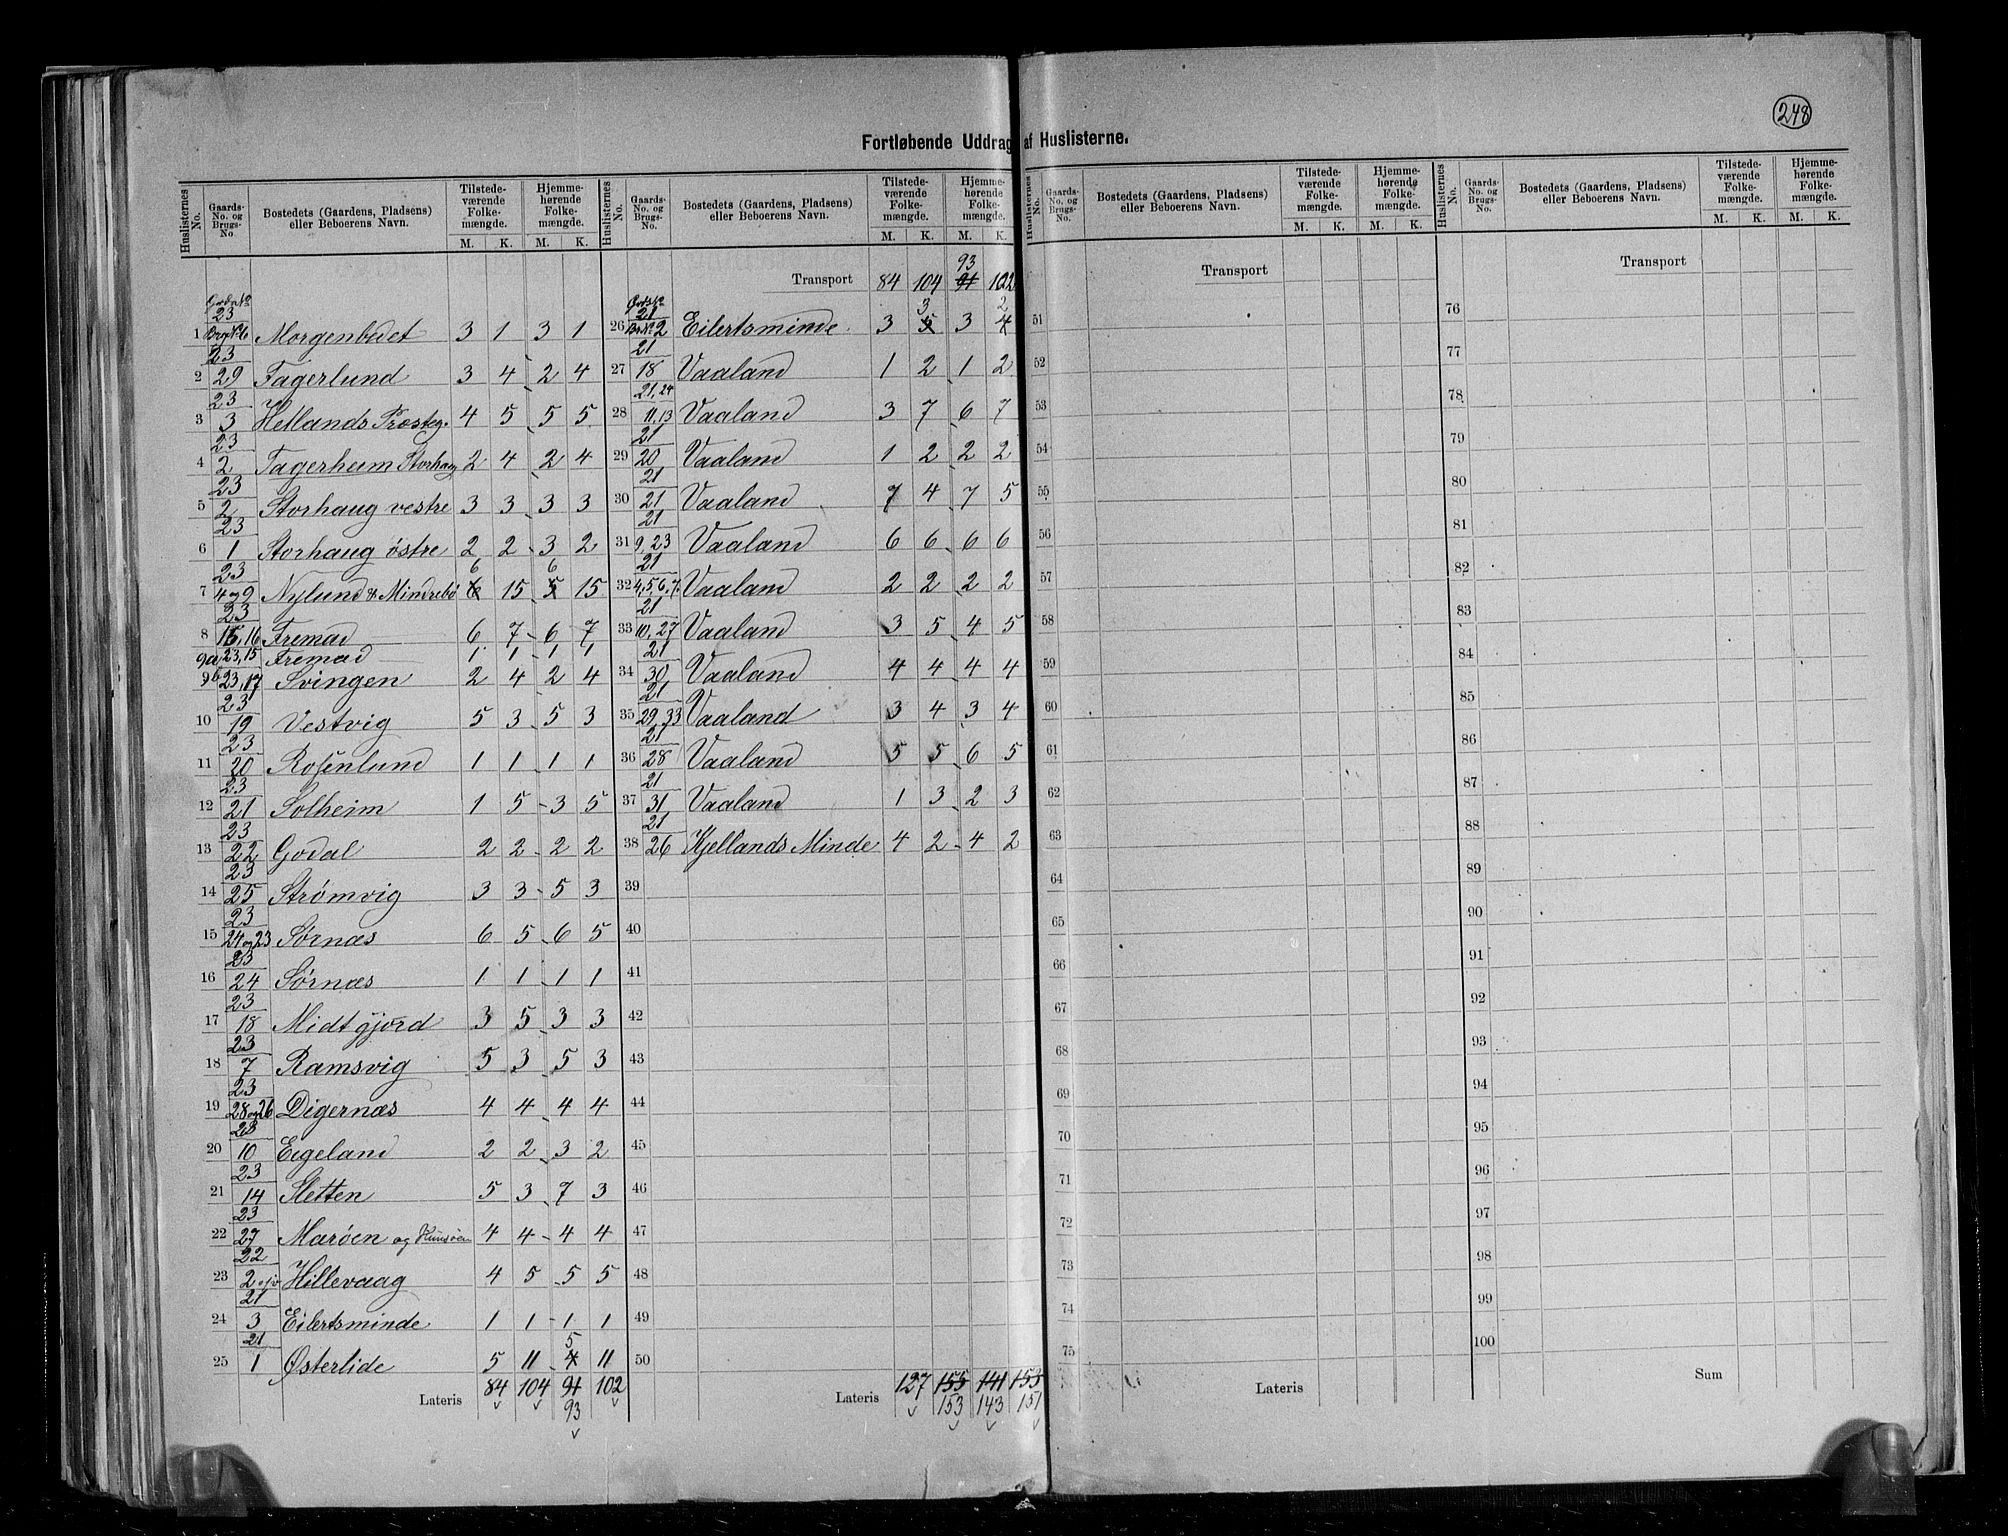 248
Fortløbende Uddrag af Huslisterne.
Huslisternes No. Gaards-No. og Brugs-No. Bostedets (Gaardens, Pladsen) eller Beboerens Navn. Tilstedeværende Folkemængde. M. K. Hjemmehørende Folkemængde. M. K.
1 23 6 Morgenbedet 3 1 3 1
2 23 29 Fagerlund 3 4 2 4
3 23 3 Hetlands Præsteg. 4 5 5 5
4 23 2 Fagerheim Storhaug 2 4 2 4
5 23 2 Storhaug vestre 3 3 3 3
6 23 1 Storhaug østre 2 2 3 2
7 23 4 og 9 Nylund & Mindrebø 6 15 6 15
8 23 15, 16 Fremad 6 7 6 7
9a 23, 15 Fremad 1 1 1 1
9b 23, 17 Svingen 2 4 2 4
10 23 19 Vestvig 5 3 5 3
11 23 20 Rosenlund 1 1 1 1
12 23 21 Solheim 1 5 3 5
13 23 22 Godal 2 2 2 2
14 23 25 Strømvig 3 3 5 3
15 23 24 og 23 Sørnæs 6 5 6 5
16 23 24 Sørnæs 1 1 1 1
17 23 18 Midtgjord 3 5 3 3
18 23 7 Ramsvig 5 3 5 3
19 23 28 og 26 Digernæs 4 4 4 4
20 23 10 Eigeland 2 2 3 2
21 23 14 Sletten 5 3 7 3
22 23 27 Marøen og 4 4 4 4
23 22 2 Hillevaag 4 5 5 5
24 21 3 Eilertsminde 1 1 1 1
25 21 1 Østerlide 5 11 5 4 11
Lateris 84 104 91 102
93
Huslisternes No. Gaards-No. og Brugs-No. Bostedets (Gaardens, Pladsen) eller Beboerens Navn. Tilstedeværende Folkemængde. M. K. Hjemmehørende Folkemængde. M. K.
93
Transport 84 104 91 102
26 21 2 Eilertsminde 3 3 5 3 2 4
27 21 18 Vaaland 1 2 1 2
28 21, 24 11, 13 Vaaland 3 7 6 7
29 21 20 Vaaland 1 2 2 2
30 21 21 Vaaland 7 4 7 5
31 21 9, 23 Vaaland 6 6 6 6
32 21 4, 5, 6, 7. Vaaland 2 2 2 2
33 21 10, 27 Vaaland 3 5 4 5
34 21 30 Vaaland 4 4 4 4
35 21 29, 33 Vaaland 3 4 3 4
36 21 28 Vaaland 5 5 6 5
37 21 31 Vaaland 1 3 2 3
38 21 26 Kjellands Minde 4 2 4 2
39
40
41
42
43
44
45
46
47
48
49
50
Lateris 127 155 141 153
153 143 151
Huslisternes No. Gaards-No. og Brugs-No. Bostedets (Gaardens, Pladsen) eller Beboerens Navn. Tilstedeværende Folkemængde. M. K. Hjemmehørende Folkemængde. M. K.
Transport
51
52
53
54
55
56
57
58
59
60
61
62
63
64
65
66
67
68
69
70
71
72
73
74
75
Lateris
Huslisternes No. Gaards-No. og Brugs-No. Bostedets (Gaardens, Pladsen) eller Beboerens Navn. Tilstedeværende Folkemængde. M. K. Hjemmehørende Folkemængde. M. K.
Transport
76
77
78
79
80
81
82
83
84
85
86
87
88
89
90
91
92
93
94
95
96
97
98
99
100
Sum